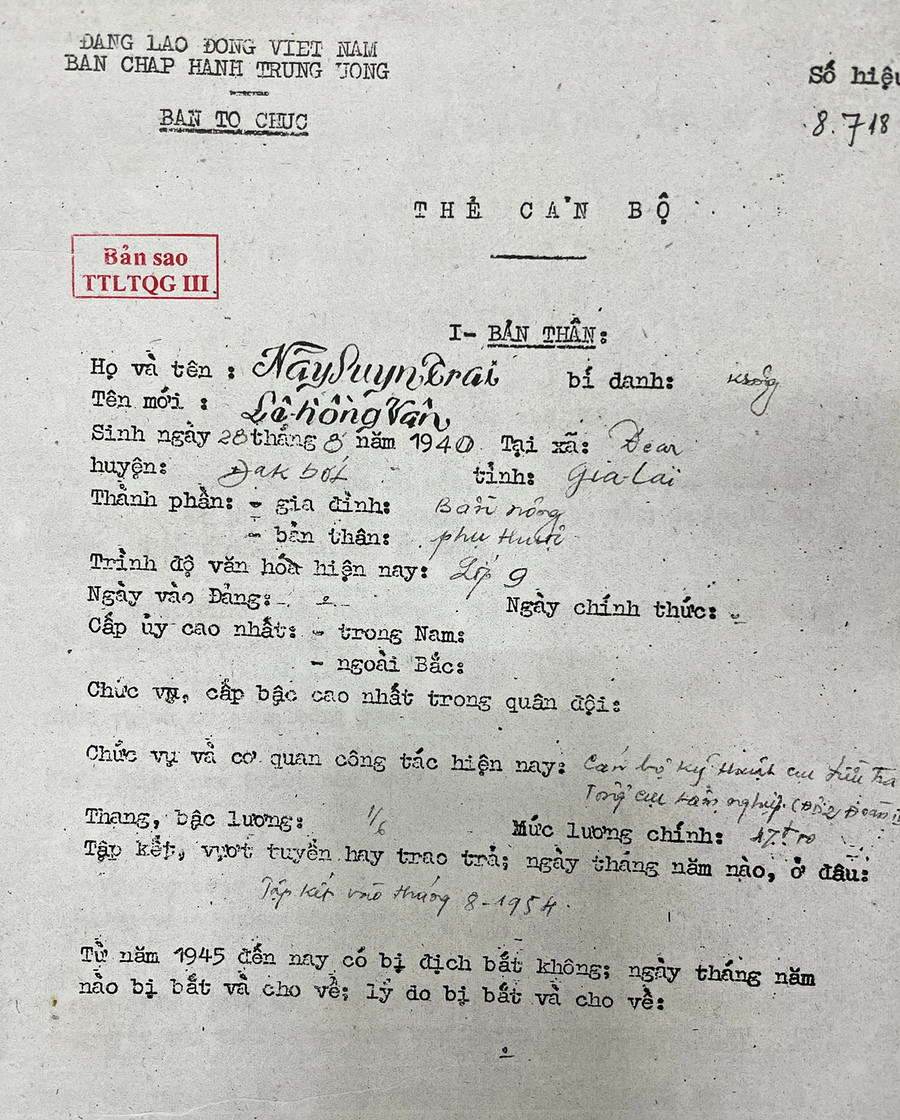 ĐANG LAO ĐONG VIET NAM
BAN CHAP HANH TRUNG UONG
BAN TO CHUC
Số hiệu
8.718
THẺ CÁN BỘ
Bản sao
TTLTQG III
I- BẢN THÂN:
Họ và tên : Nãy Suyn Trai bí danh: Krông
Tên mới : Lê-Hồng Vân
Sinh ngày 28 tháng 8 năm 1940 Tại xã: Đear
huyện: Đak bót tỉnh: Gia-Lai
Thành phần: - gia đình: Bần nông
- bản thân: phụ thuộc
Trình độ văn hóa hiện nay: Lớp 9
Ngày vào Đảng: - Ngày chính thức: -
Cấp ủy cao nhất: - trong Nam:
- ngoài Bắc:
Chức vụ, cấp bậc cao nhất trong quân đội:
Chức vụ và cơ quan công tác hiện nay: Cán bộ kỹ thuật cục Điều Tra
Tổng cục Lâm nghiệp (Đ2 Đoàn
Thang, bậc lương: 1/6 Mức lương chính:
Tập kết, vượt tuyến hay trao trả; ngày tháng năm nào, ở đâu:
Tập kết vào tháng 8-1954.
Từ năm 1945 đến nay có bị địch bắt không; ngày tháng năm
nào bị bắt và cho về; lý do bị bắt và cho về: